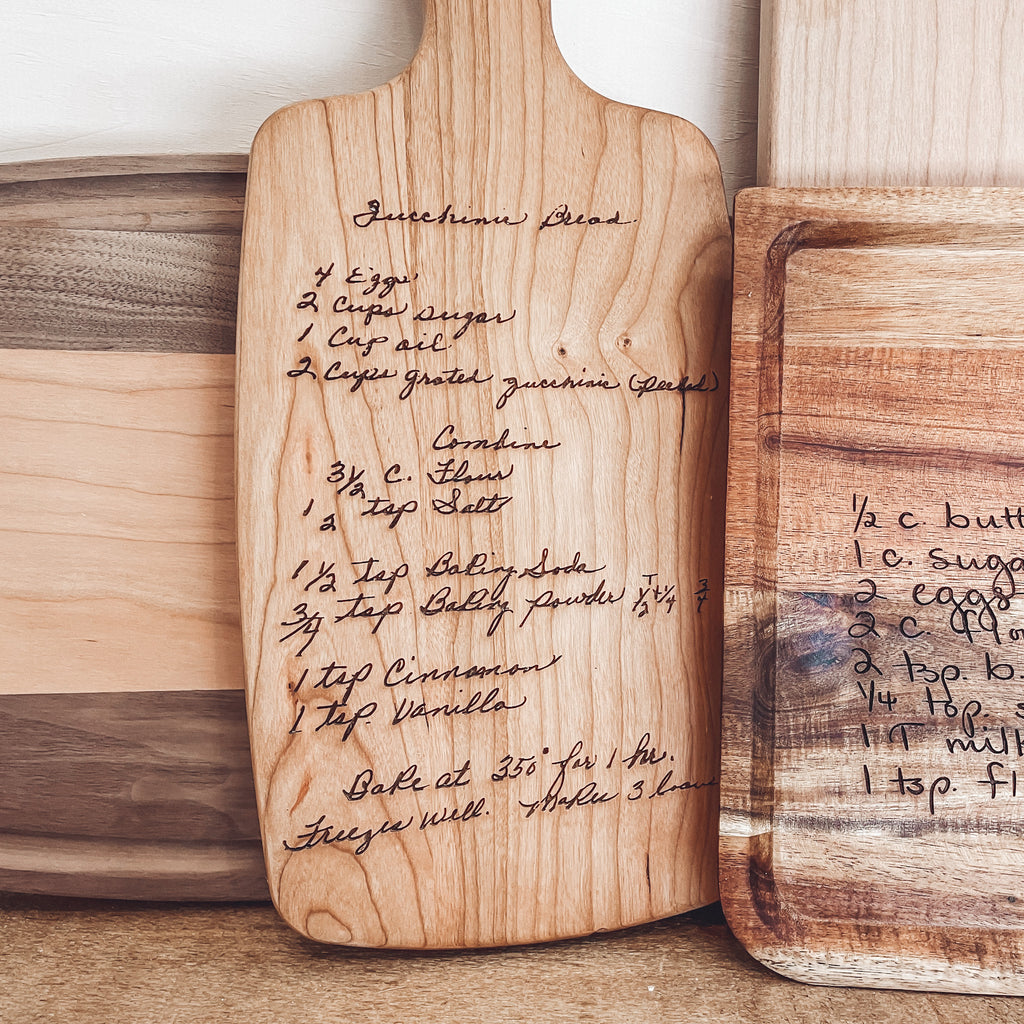 Zucchinie Bread
4 Eggs
2 Cups sugar
1 Cup oil
2 Cups grated zucchinie (peeled)
Combine
3 1/2 c. Flour
1 2 tsp Salt
1 1/2 tsp Baking Soda
3/4 tsp Baking powder 1/2 T + 1/4 3/4
1 tsp Cinnamon
1 tsp. Vanilla
Bake at 350° for 1 hr.
Freezes well. Makes 3 loaves
1/2 c. butt
1 c. suga
2 eggs
2 c.
2 tsp. b.
1/4 tsp. s
1 T milk
1 tsp. fl